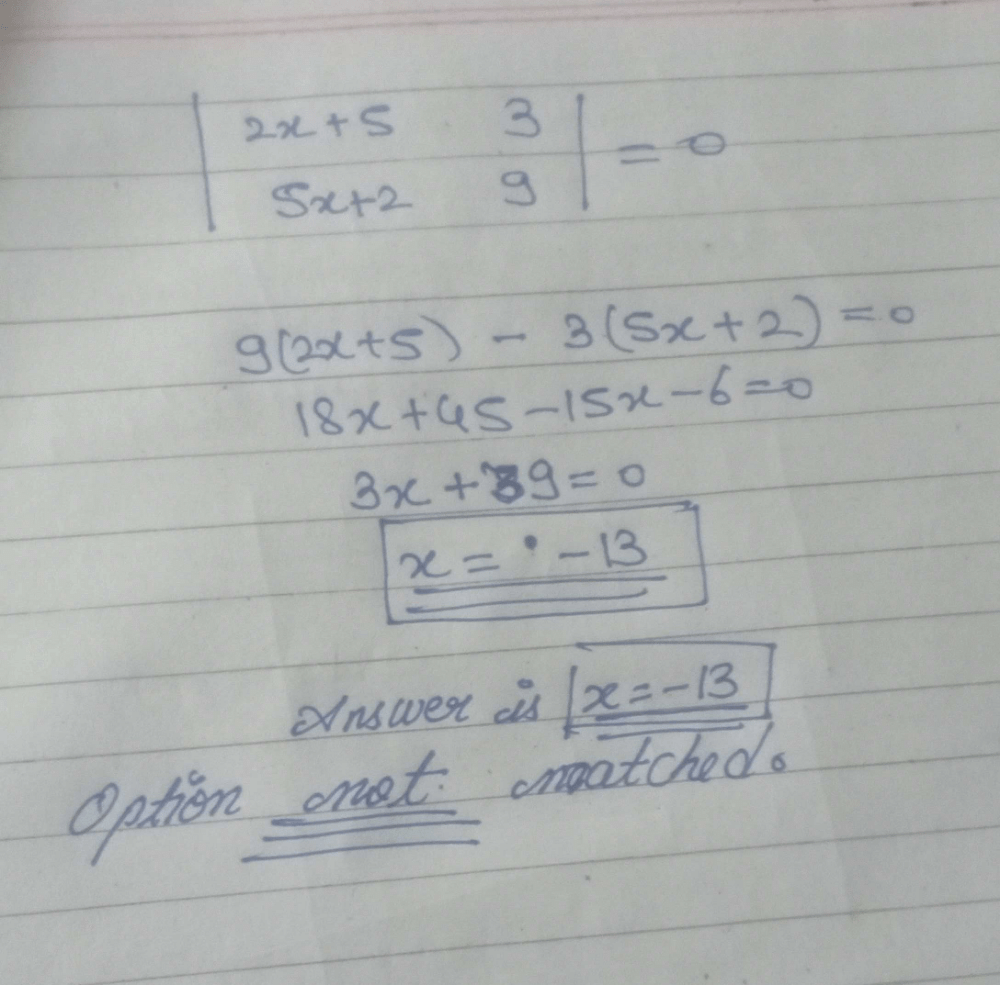 | 2x+5 3 | = 0
| 5x+2 9 |
9(2x+5) - 3(5x+2) = 0
18x+45-15x-6=0
3x+39=0
x = -13
Answer is x=-13
Option not matched.